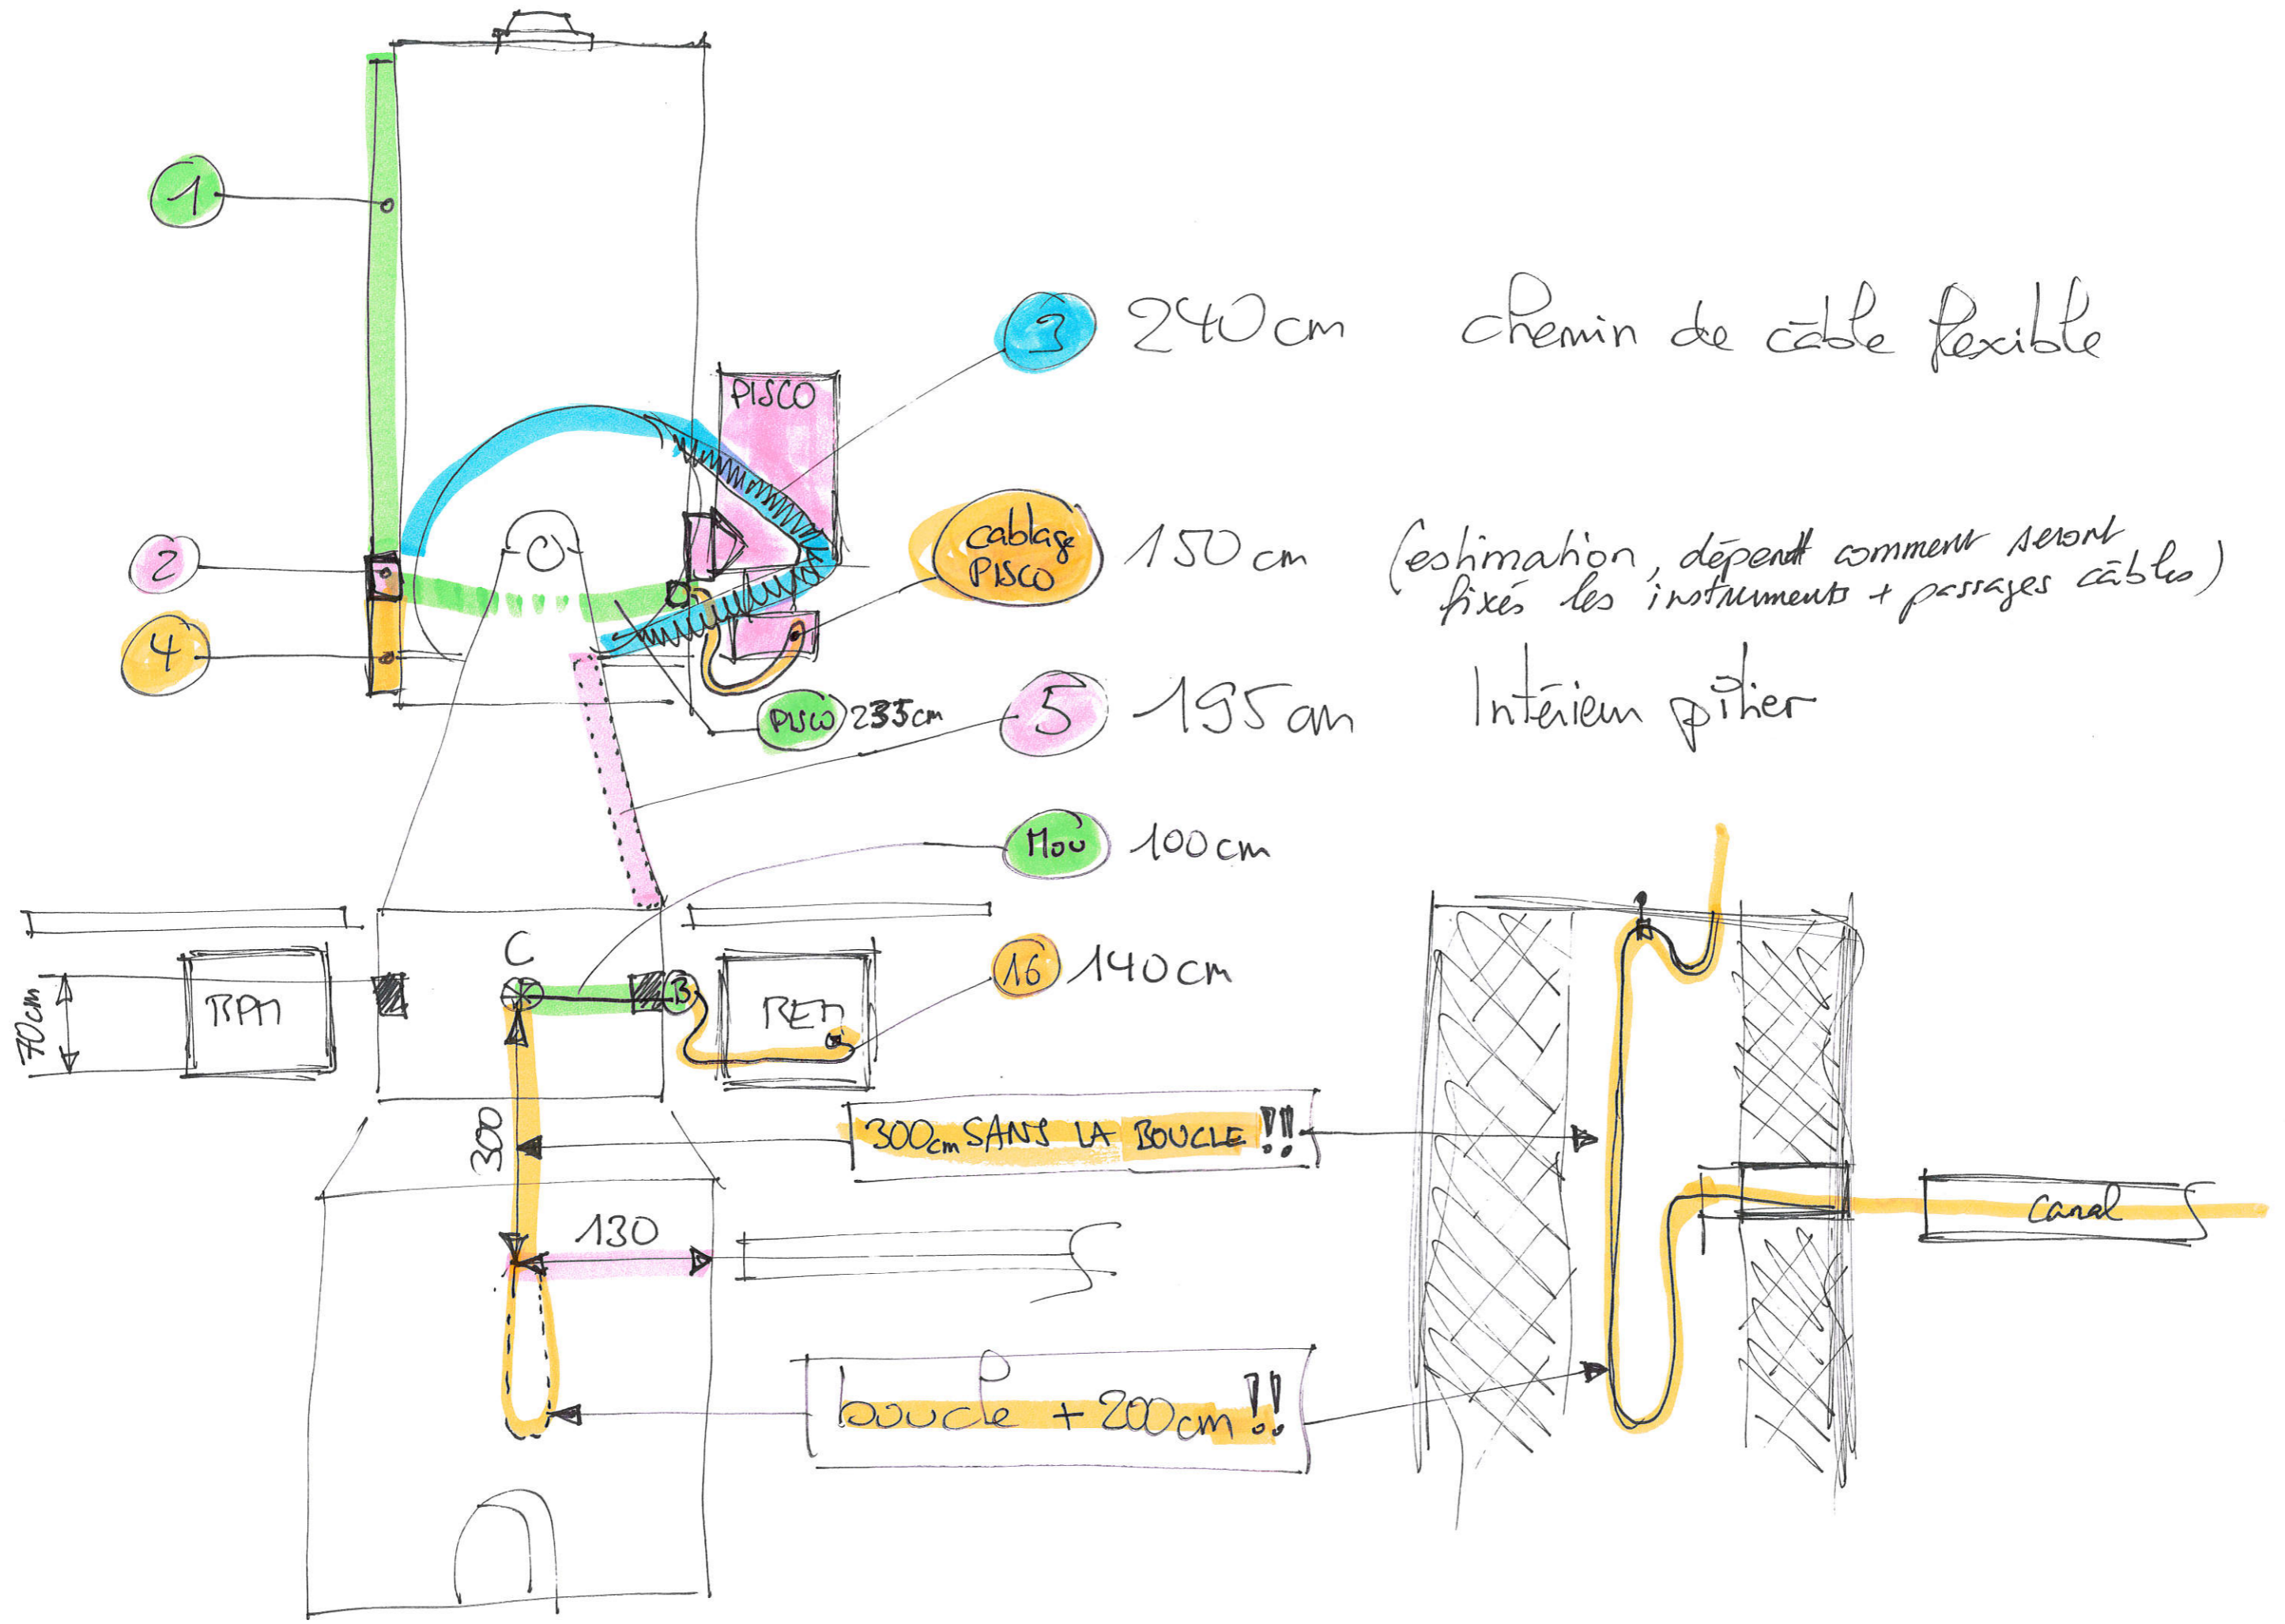 1
3 240 cm chemin de câble flexible
PISCO
2
cablage
PISCO
150 cm
(estimation, dépend comment seront
fixés les instruments + passages câbles)
4
PISCO 235 cm
5 195 cm Intérieur pilier
Moù 100 cm
C
B
16 140 cm
70cm
300
300cm SANS LA BOUCLE !!
130
canal
boucle + 200cm !!